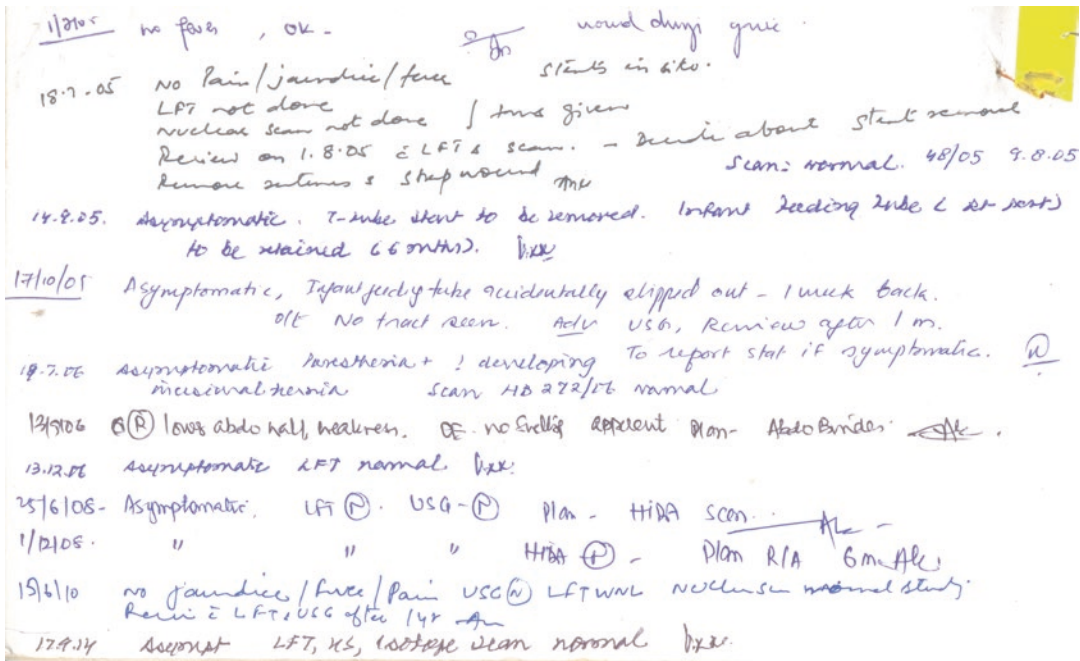 no fever, OK -
18.7.05 No Pain/jaundice/fever stents in situ.
LFT not done
Nuclear scan not done given
Review on 1.8.05 c̄ LFT & scan. - Decide about stent removal
Remove sutures & strap wound Scan: normal. 48/05 9.8.05
14.9.05. Asymptomatic. T-tube stent to be removed. Infant feeding tube
to be retained (6 months).
17/10/05 Asymptomatic, Infant feeding tube accidentally slipped out - 1 week back.
O/E No tract seen. Adv USG, Review after 1 m.
To report stat if symptomatic.
Asymptomatic Paresthesia + ? developing
incisional hernia Scan HD 272/06 normal
(R) lower abdo wall weakness. OE- no swelling apparent Plan- Abdo Binder.
13.12.06 Asymptomatic LFT normal
25/6/08- Asymptomatic. LFT (N). USG-(N) Plan - HIDA Scan.
1/12/08. " " " HIDA (N) - Plan R/A 6m
15/6/10 No jaundice/fever/Pain USG (N) LFT WNL normal study.
c̄ LFT & USG after 1yr
17.9.14 Asympt LFT, US, isotope scan normal